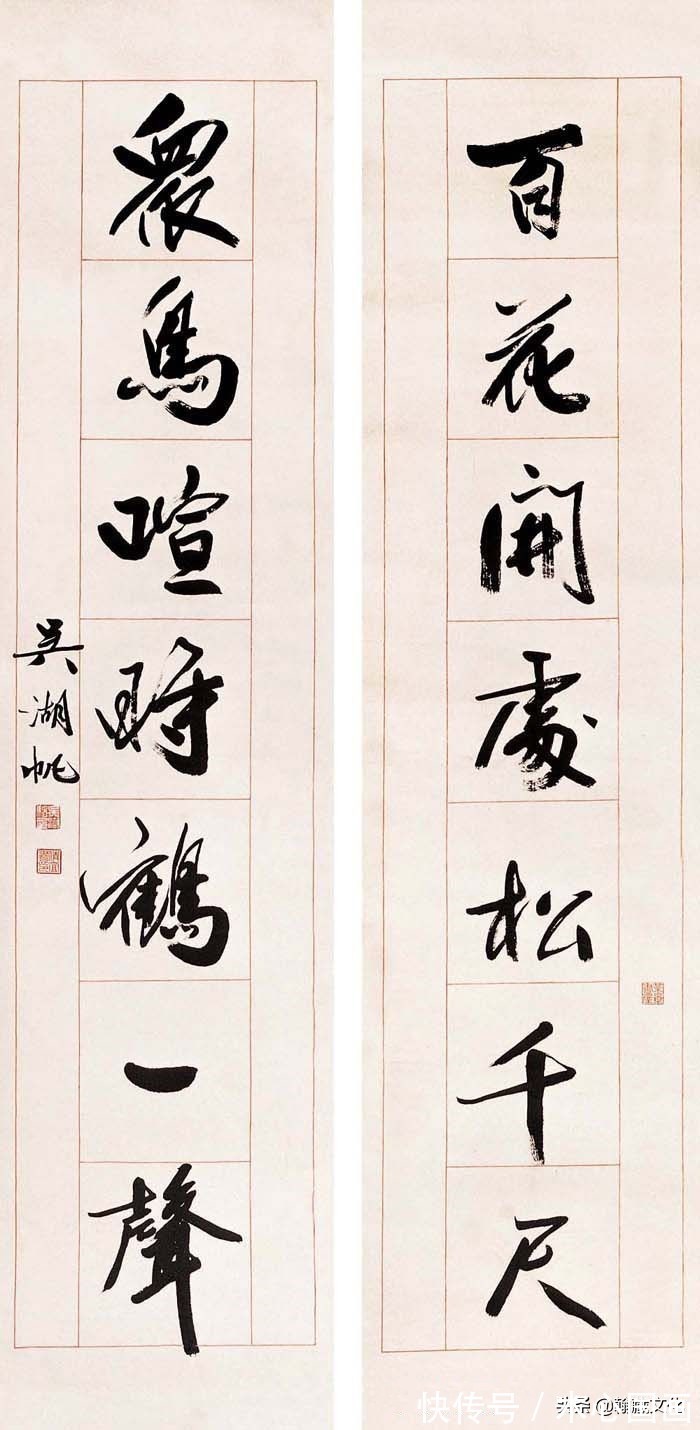 百花開處松千尺
眾鳥喧時鶴一聲
吳湖帆
快传号 /
头条 @翰
文化